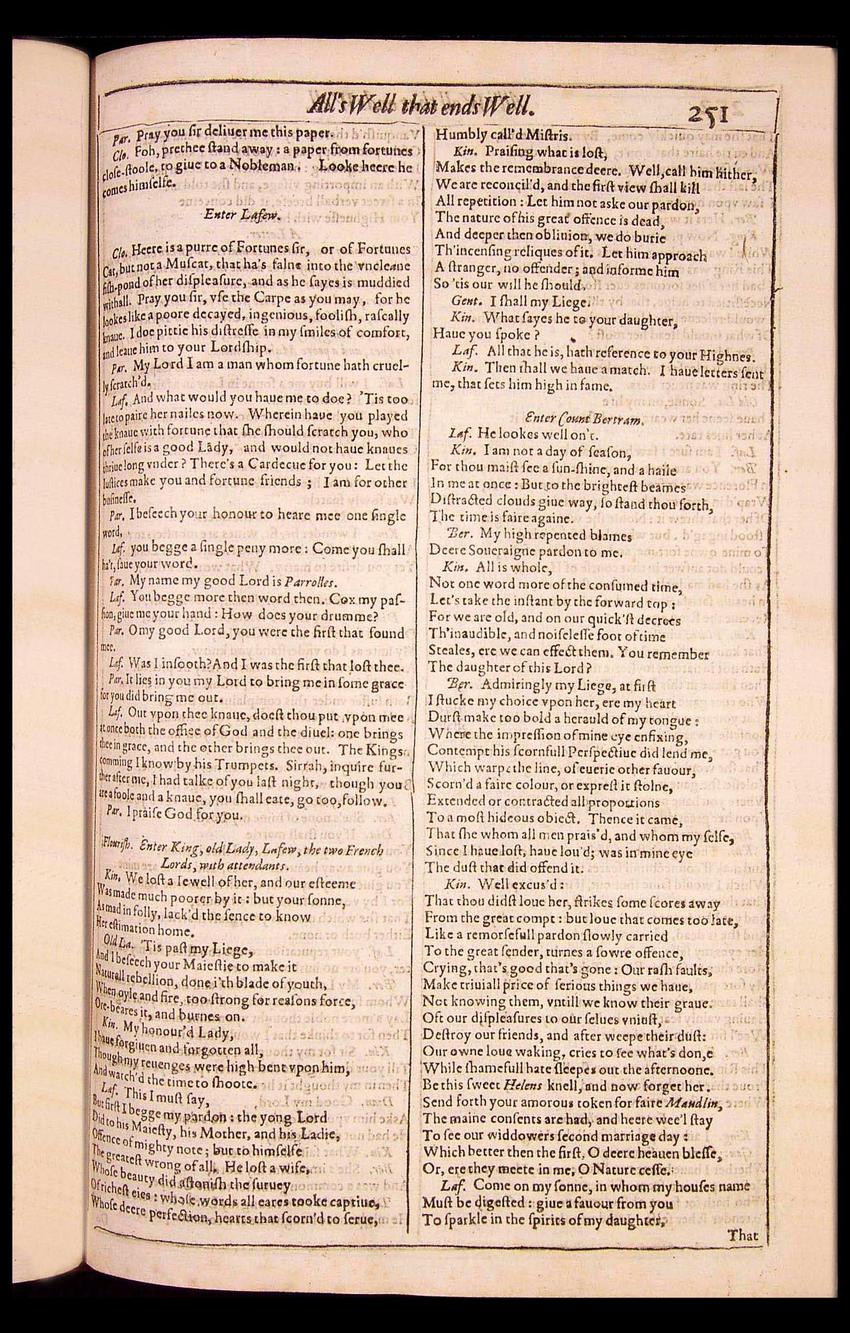 All's Well that ends Well.
251
Par. Pray you ſir deliuer me this paper.
Clo. Foh, prethee ſtand away : a paper from fortunes
cloſe-ſtoole, to giue to a Nobleman. Looke heere he
comes himſelfe.
Enter Lafew.
Clo. Heere is a purre of Fortunes ſir, or of Fortunes
Cat, but not a Muſcat, that ha's falne into the vncleane
fiſh-pond of her diſpleaſure, and as he ſayes is muddied
withall. Pray you ſir, vſe the Carpe as you may, for he
lookes like a poore decayed, ingenious, fooliſh, raſcally
knaue. I doe pittie his diſtreſſe in my ſmiles of comfort,
and leaue him to your Lordſhip.
Par. My Lord I am a man whom fortune hath cruel-
ly ſcratch'd.
Laf. And what would you haue me to doe? 'Tis too
late to paire her nailes now. Wherein haue you played
the knaue with fortune that ſhe ſhould ſcratch you, who
of her ſelfe is a good Lady, and would not haue knaues
thriue long vnder ? There's a Cardecue for you : Let the
Iuſtices make you and fortune friends ; I am for other
buſineſſe.
Par. I beſeech your honour to heare mee one ſingle
word,
Laf. you begge a ſingle peny more : Come you ſhall
ha't, ſaue your word.
Par. My name my good Lord is Parrolles.
Laf. You begge more then word then. Cox my paſ-
ſion, giue me your hand : How does your drumme?
Par. O my good Lord, you were the firſt that found
mee.
Laf. Was I inſooth? And I was the firſt that loſt thee.
Par. It lies in you my Lord to bring me in ſome grace
for you did bring me out.
Laf. Out vpon thee knaue, doeſt thou put vpon mee
at once both the office of God and the diuel: one brings
thee in grace, and the other brings thee out. The Kings
comming I know by his Trumpets. Sirrah, inquire fur-
ther after me, I had talke of you laſt night, though you
are a foole and a knaue, you ſhall eate, go too, follow.
Par. I praiſe God for you.
Flouriſh. Enter King, old Lady, Lafew, the two French
Lords, with attendants.
Kin. We loſt a Iewell of her, and our eſteeme
Was made much poorer by it : but your ſonne,
As mad in folly, lack'd the ſence to know
Her eſtimation home.
Old La. 'Tis paſt my Liege,
And I beſeech your Maieſtie to make it
Naturall rebellion, done i'th blade of youth,
When oyle and fire, too ſtrong for reaſons force,
Ore-beares it, and burnes on.
Kin. My honour'd Lady,
I haue forgiuen and forgotten all,
Though my reuenges were high bent vpon him,
And watch'd the time to ſhoote.
Laf. This I muſt ſay,
But firſt I begge my pardon : the yong Lord
Did to his Maieſty, his Mother, and his Ladie,
Offence of mighty note ; but to himſelfe
The greateſt wrong of all. He loſt a wife,
Whoſe beauty did aſtoniſh the ſuruey
Of richeſt eies : whoſe words all eares tooke captiue,
Whoſe deere perfection, hearts that ſcorn'd to ſerue,
Humbly call'd Miſtris.
Kin. Praiſing what is loſt,
Makes the remembrance deere. Well, call him hither,
We are reconcil'd, and the firſt view ſhall kill
All repetition : Let him not aske our pardon,
The nature of his great offence is dead,
And deeper then obliuion, we do burie
Th'incenſing reliques of it. Let him approach
A ſtranger, no offender ; and informe him
So 'tis our will he ſhould.
Gent. I ſhall my Liege.
Kin. What ſayes he to your daughter,
Haue you ſpoke ?
Laf. All that he is, hath reference to your Highnes.
Kin. Then ſhall we haue a match. I haue letters ſent
me, that ſets him high in fame.
Enter Count Bertram.
Laf. He lookes well on't.
Kin. I am not a day of ſeaſon,
For thou maiſt ſee a ſun-ſhine, and a haile
In me at once : But to the brighteſt beames
Diſtracted clouds giue way, ſo ſtand thou forth,
The time is faire againe.
Ber. My high repented blames
Deere Soueraigne pardon to me.
Kin. All is whole,
Not one word more of the conſumed time,
Let's take the inſtant by the forward top :
For we are old, and on our quick'ſt decrees
Th'inaudible, and noiſeleſſe foot of time
Steales, ere we can effect them. You remember
The daughter of this Lord ?
Ber. Admiringly my Liege, at firſt
I ſtucke my choice vpon her, ere my heart
Durſt make too bold a herauld of my tongue :
Where the impreſſion of mine eye enfixing,
Contempt his ſcornfull Perſpectiue did lend me,
Which warpt the line, of euerie other fauour,
Scorn'd a faire colour, or expreſt it ſtolne,
Extended or contracted all proportions
To a moſt hideous obiect. Thence it came,
That ſhe whom all men prais'd, and whom my ſelfe,
Since I haue loſt, haue lou'd; was in mine eye
The duſt that did offend it.
Kin. Well excus'd :
That thou didſt loue her, ſtrikes ſome ſcores away
From the great compt : but loue that comes too late,
Like a remorſefull pardon ſlowly carried
To the great ſender, turnes a ſowre offence,
Crying, that's good that's gone : Our raſh faults,
Make triuiall price of ſerious things we haue,
Not knowing them, vntill we know their graue.
Oft our diſpleaſures to our ſelues vniuſt,
Deſtroy our friends, and after weepe their duſt:
Our owne loue waking, cries to ſee what's don,e
While ſhamefull hate ſleepes out the afternoone.
Be this ſweet Helens knell, and now forget her.
Send forth your amorous token for faire Maudlin,
The maine conſents are had, and heere wee'l ſtay
To ſee our widdowers ſecond marriage day :
Which better then the firſt, O deere heauen bleſſe,
Or, ere they meete in me, O Nature ceſſe.
Laf. Come on my ſonne, in whom my houſes name
Muſt be digeſted : giue a fauour from you
To ſparkle in the ſpirits of my daughter,
That